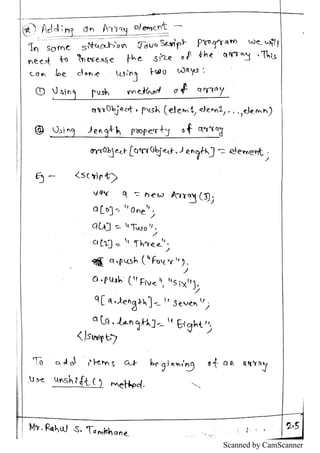 * Adding an Array element -
In some situation Java Script program we will
need to increase the size of the array. This
can be done using two ways:
① Using push method of array
arrObject.push (elem1, elem2, ..., elemn)
② Using length property of array
arrObject [arrObject.length] = element;
Eg - <script>
var a = new Array (3);
a[0] = "One";
a[1] = "Two";
a[2] = "Three";
a.push ("Four");
a.push ("Five", "Six");
a[a.length] = "Seven";
a[a.length] = "Eight";
</script>
To add items at beginning of an array
use unshift() method.
Mr. Rahul S. Tamkhane
2.5
Scanned by CamScanner